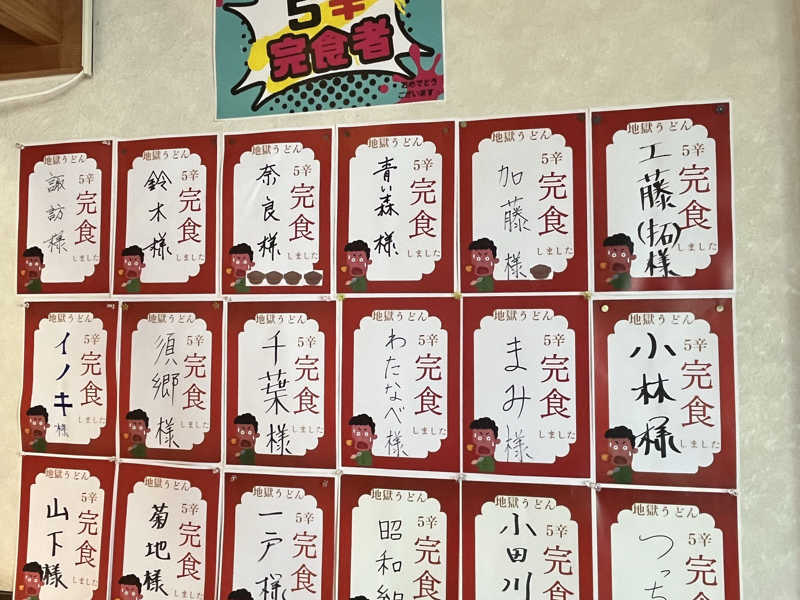 5辛
完食者
おめでとう
ございます
地獄うどん
5辛
完食
しました
諏訪様
地獄うどん
5辛
完食
しました
鈴木様
地獄うどん
5辛
完食
しました
奈良様
地獄うどん
5辛
完食
しました
青い森様
地獄うどん
5辛
完食
しました
加藤様
地獄うどん
5辛
完食
しました
工藤(拓)様
地獄うどん
5辛
完食
しました
イノキ様
地獄うどん
5辛
完食
しました
須郷様
地獄うどん
5辛
完食
しました
千葉様
地獄うどん
5辛
完食
しました
わたなべ様
地獄うどん
5辛
完食
しました
まみ様
地獄うどん
5辛
完食
しました
小林様
地獄うどん
5辛
完食
しました
山下様
地獄うどん
5辛
完食
しました
菊地様
地獄うどん
5辛
完食
一戸様
地獄うどん
5辛
完食
昭和組
地獄うどん
5辛
完食
小田川
地獄うどん
5辛
完食
つっち